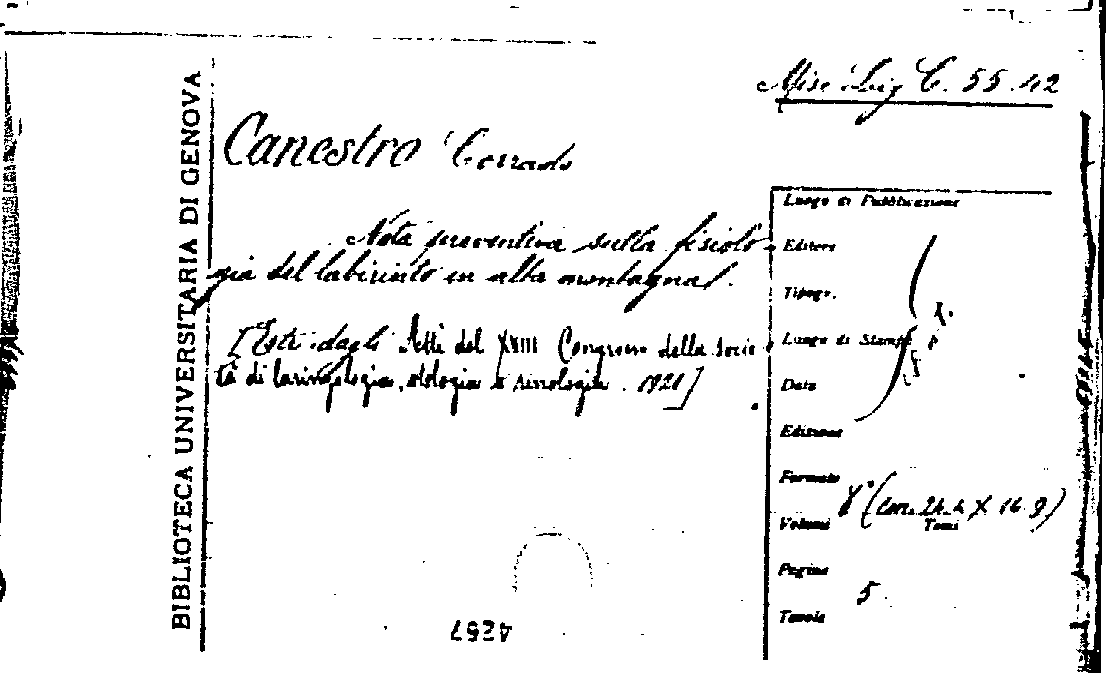 Misc. Lig. C. 55.42
BIBLIOTECA UNIVERSITARIA DI GENOVA
Canestro Corrado
Nota preventiva sulla fisiolo-
gia del labirinto in alta montagna.
[Estr. dagli Atti del XVIII Congresso della Socie-
tà di laringologia, otologia e rinologia. 1921]
Luogo di Pubblicazione
Editore
Tipogr.
Luogo di Stampa
Data
Edizione
Formato 8° (cm. 24.4 X 16.9)
Volumi Tomi
Pagine 5
Tavole
4297